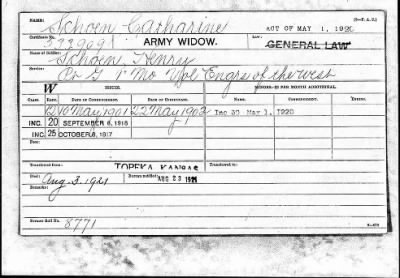 NAME: Schoen Catharine (3-F.A.U.)
ACT OF MAY 1, 1920
Certificate No. ARMY WIDOW. LAW: GENERAL LAW
Name of Soldier: Schoen, Henry
Service: Co G 1 Mo Vol Engrs of the West
W ISSUE. MINORS—$2 PER MONTH ADDITIONAL.
CLASS. RATE. DATE OF COMMENCEMENT. DATE OF CERTIFICATE. NAME. COMMENCEMENT. ENDING.
May 1901 22 May 1902 Inc 30 May 1, 1920
INC. 20 SEPTEMBER 8, 1916
INC. 25 OCTOBER 6, 1917
Transferred from TOPEKA KANSAS Transferred to
Died: Aug. 3. 1921 Bureau notified: AUG 23 1921
Remarks:
Former Roll No. 8771